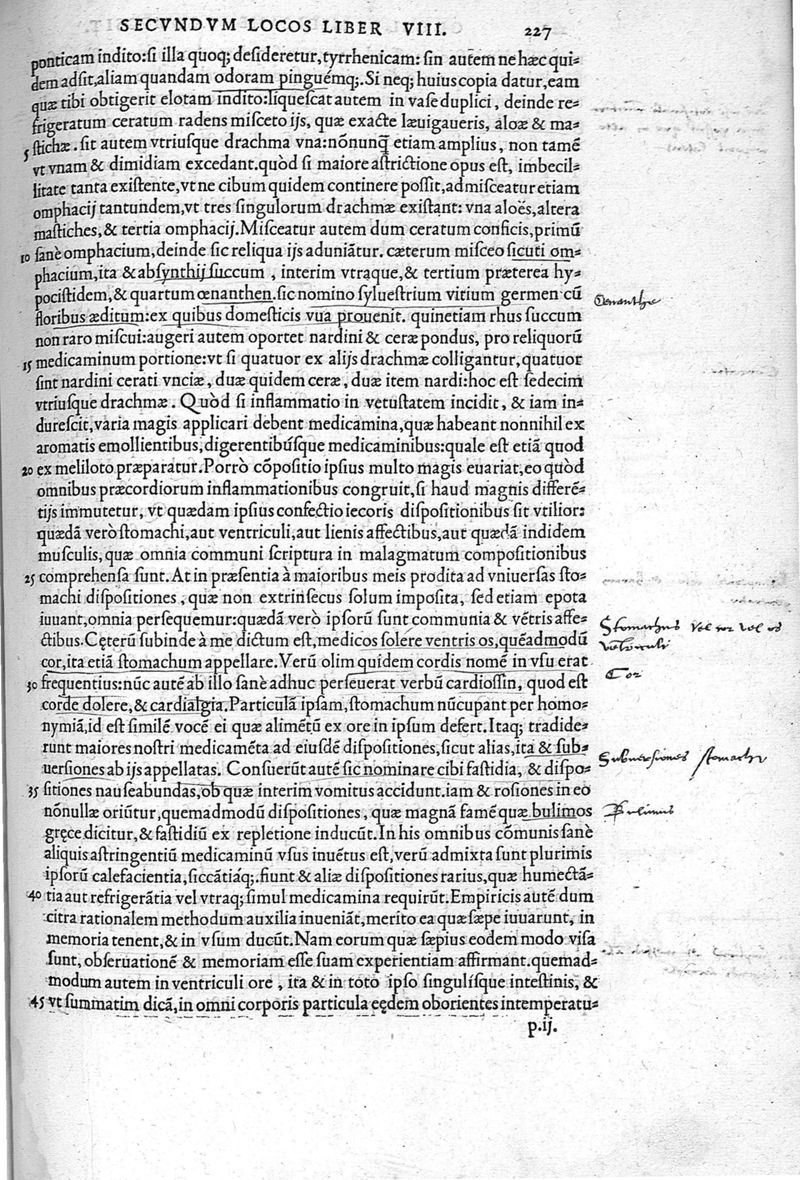 SECVNDVM LOCOS LIBER VIII. 227
ponticam indito: si illa quoq; desideretur, tyrrhenicam: sin autem ne hæc qui-
dem adsit, aliam quandam odoram pinguémq;. Si neq; huius copia datur, eam
quæ tibi obtigerit elotam indito: liquescat autem in vase duplici, deinde re-
frigeratum ceratum radens misceto ijs, quæ exacte læuigaueris, aloæ & ma-
5 stichæ. sit autem vtriusque drachma vna: nōnunq̄ etiam amplius, non tamē
vt vnam & dimidiam excedant. quòd si maiore astrictione opus est, imbecil-
litate tanta existente, vt ne cibum quidem continere possit, admisceatur etiam
omphacij tantundem, vt tres singulorum drachmæ existant: vna aloës, altera
mastiches, & tertia omphacij. Misceatur autem dum ceratum conficis, primū
10 sanè omphacium, deinde sic reliqua ijs aduniātur. cæterum misceo sicuti om-
phacium, ita & absynthij succum, interim vtraque, & tertium præterea hy-
pocistidem, & quartum œnanthen. sic nomino syluestrium vitium germen cū
floribus æditum: ex quibus domesticis vua prouenit. quinetiam rhus succum
non raro miscui: augeri autem oportet nardini & ceræ pondus, pro reliquorū
15 medicaminum portione: vt si quatuor ex alijs drachmæ colligantur, quatuor
sint nardini cerati vnciæ, duæ quidem ceræ, duæ item nardi: hoc est sedecim
vtriusque drachmæ. Quòd si inflammatio in vetustatem incidit, & iam in-
durescit, varia magis applicari debent medicamina, quæ habeant nonnihil ex
aromatis emollientibus, digerentibúsque medicaminibus: quale est etiā quod
20 ex meliloto præparatur. Porrò cōpositio ipsius multo magis euariat, eo quòd
omnibus præcordiorum inflammationibus congruit, si haud magnis differē-
tijs immutetur, vt quædam ipsius confectio iecoris dispositionibus sit vtilior:
quædā verò stomachi, aut ventriculi, aut lienis affectibus, aut quædā indidem
musculis, quæ omnia communi scriptura in malagmatum compositionibus
25 comprehensa sunt. At in præsentia à maioribus meis prodita ad vniuersas sto-
machi dispositiones, quæ non extrinsecus solum imposita, sed etiam epota
iuuant, omnia persequemur: quædā verò ipsorū sunt communia & vētris affe-
ctibus. Cęterū subinde à me dictum est, medicos solere ventris os, quēadmodū
cor, ita etiā stomachum appellare. Verū olim quidem cordis nomē in vsu erat
30 frequentius: nūc autē ab illo sanè adhuc perseuerat verbū cardiossin, quod est
corde dolere, & cardialgia. Particulā ipsam, stomachum nūcupant per homo-
nymiā, id est similē vocē ei quæ alimētū ex ore in ipsum defert. Itaq; tradide-
runt maiores nostri medicamēta ad eiusdē dispositiones, sicut alias, ita & sub-
uersiones ab ijs appellatas. Consuerūt autē sic nominare cibi fastidia, & dispo-
35 sitiones nauseabundas, ob quæ interim vomitus accidunt. iam & rosiones in eo
nōnullæ oriūtur, quemadmodū dispositiones, quæ magnā famē quæ bulimos
gręce dicitur, & fastidiū ex repletione inducūt. In his omnibus cōmunis sanè
aliquis astringentiū medicaminū vsus inuētus est, verū admixta sunt plurimis
ipsorū calefacientia, siccātiáq;. fiunt & aliæ dispositiones rarius, quæ humectā-
40 tia aut refrigerātia vel vtraq; simul medicamina requirūt. Empiricis autē dum
citra rationalem methodum auxilia inueniāt, merito ea quæ sæpe iuuarunt, in
memoria tenent, & in vsum ducūt. Nam eorum quæ sæpius eodem modo visa
sunt, obseruationē & memoriam esse suam experientiam affirmant. quemad-
modum autem in ventriculi ore, ita & in toto ipso singulísque intestinis, &
45 vt summatim dicā, in omni corporis particula eędem oborientes intemperatu-
p.ij.
Oenanthe
Stomachus vel cor vel os
ventriculi
Cor
Subuersiones stomachi
Bulimus